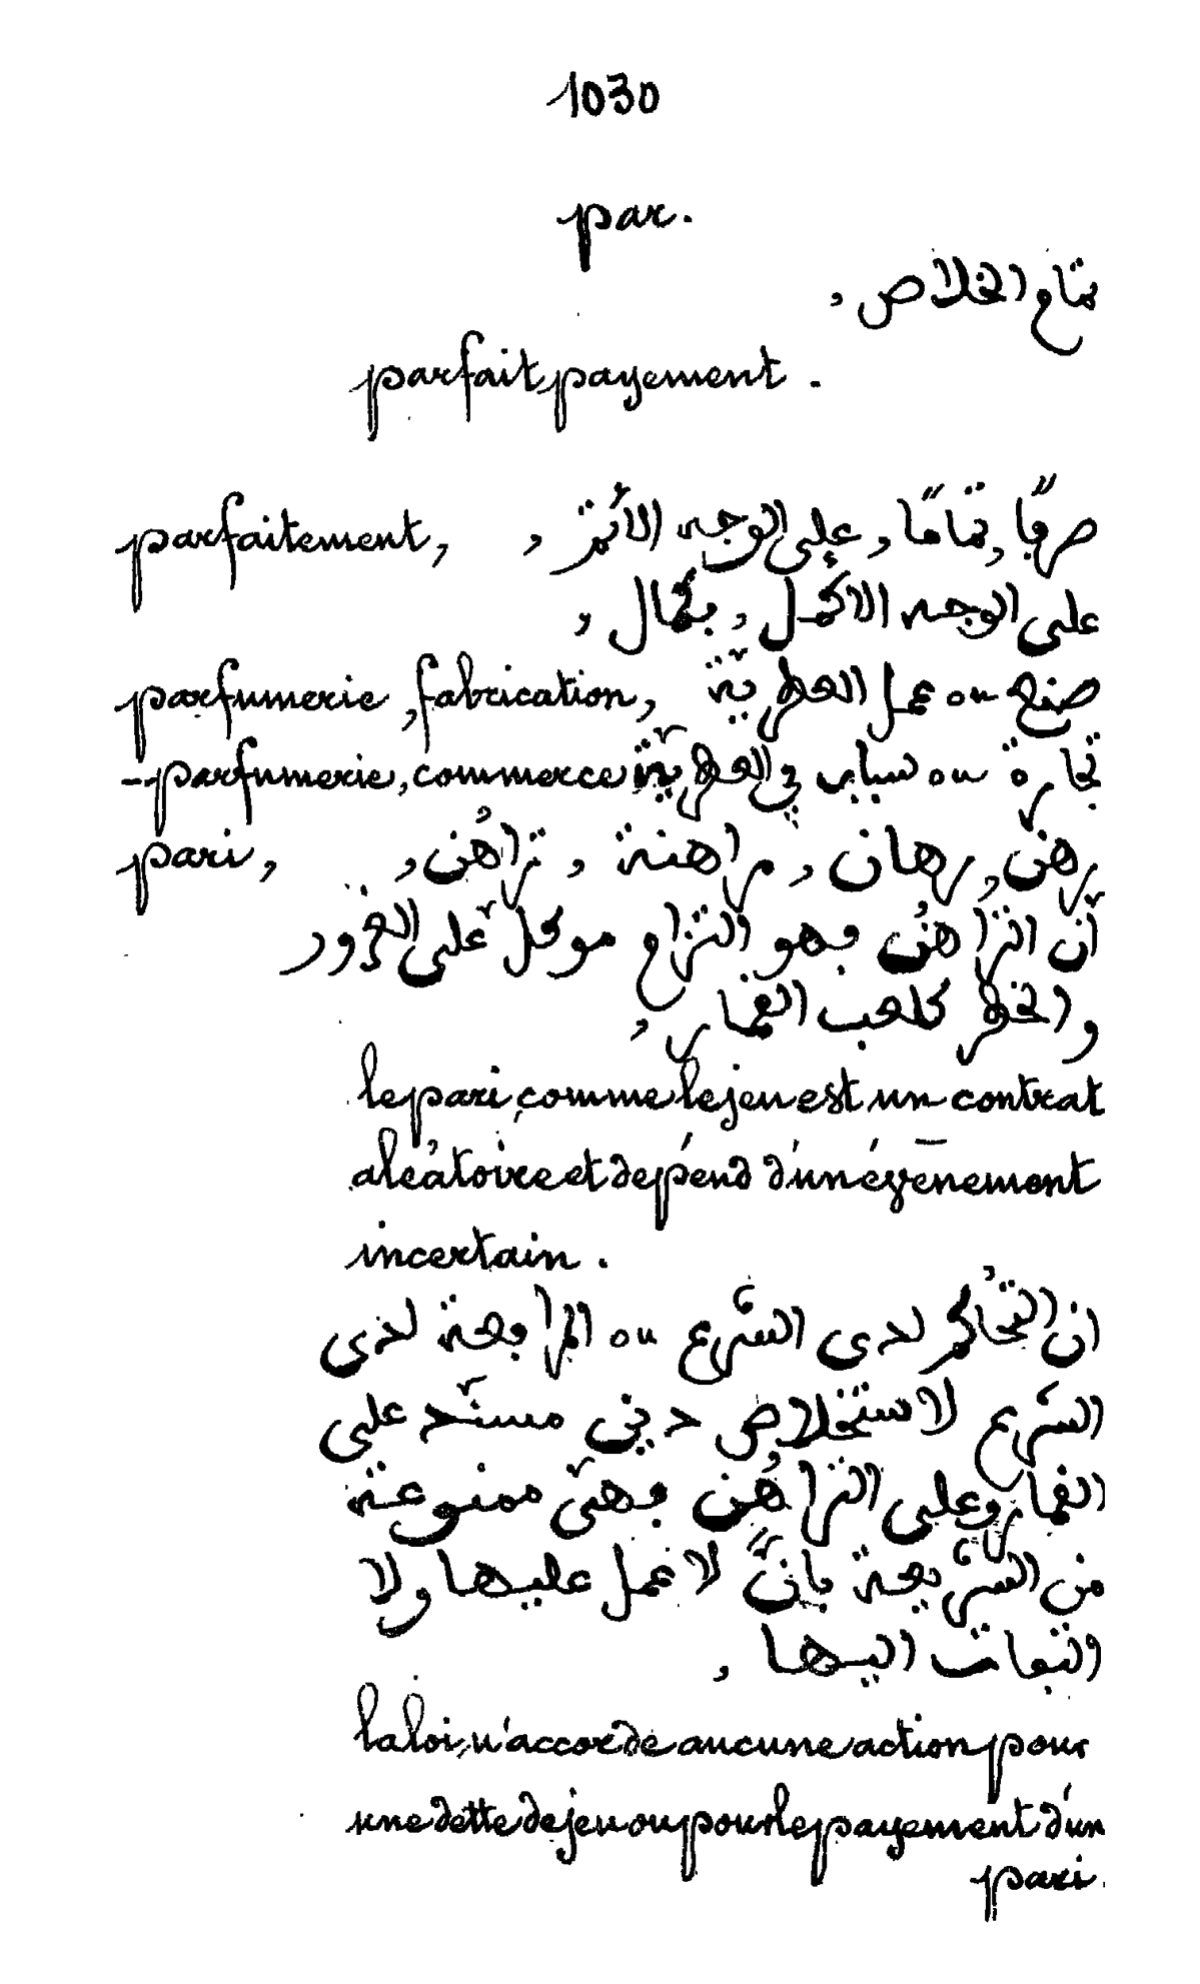 1030
par.
تمام الخلاص ,
parfait payement .
parfaitement, صرفًا, تمامًا, على الوجه الأتمّ ,
على الوجه الاكمل, بكمال ,
parfumerie, fabrication, صنع ou عمل العطريّة
-parfumerie, commerce تجارة ou سبابى في العطريّة
pari, رهن, رهان, مراهنة, تراهُن,
أنّ التراهُن فهو التزام موكل على الغرور
والخطر كلعب القمار ,
le pari, comme le jeu est un contrat
aléatoire et dépend d'un évènement
incertain .
ان التحاكُم لدى الشرع ou المرافعة لدى
الشرع لاستخلاص دين مستّد على
القمار وعلى التراهُن فهيّ ممنوعة
من الشريعة بانًّ لا عمل عليها ولا
التفات اليها ,
la loi, n'accorde aucune action pour
une dette de jeu ou pour le payement d'un
pari.